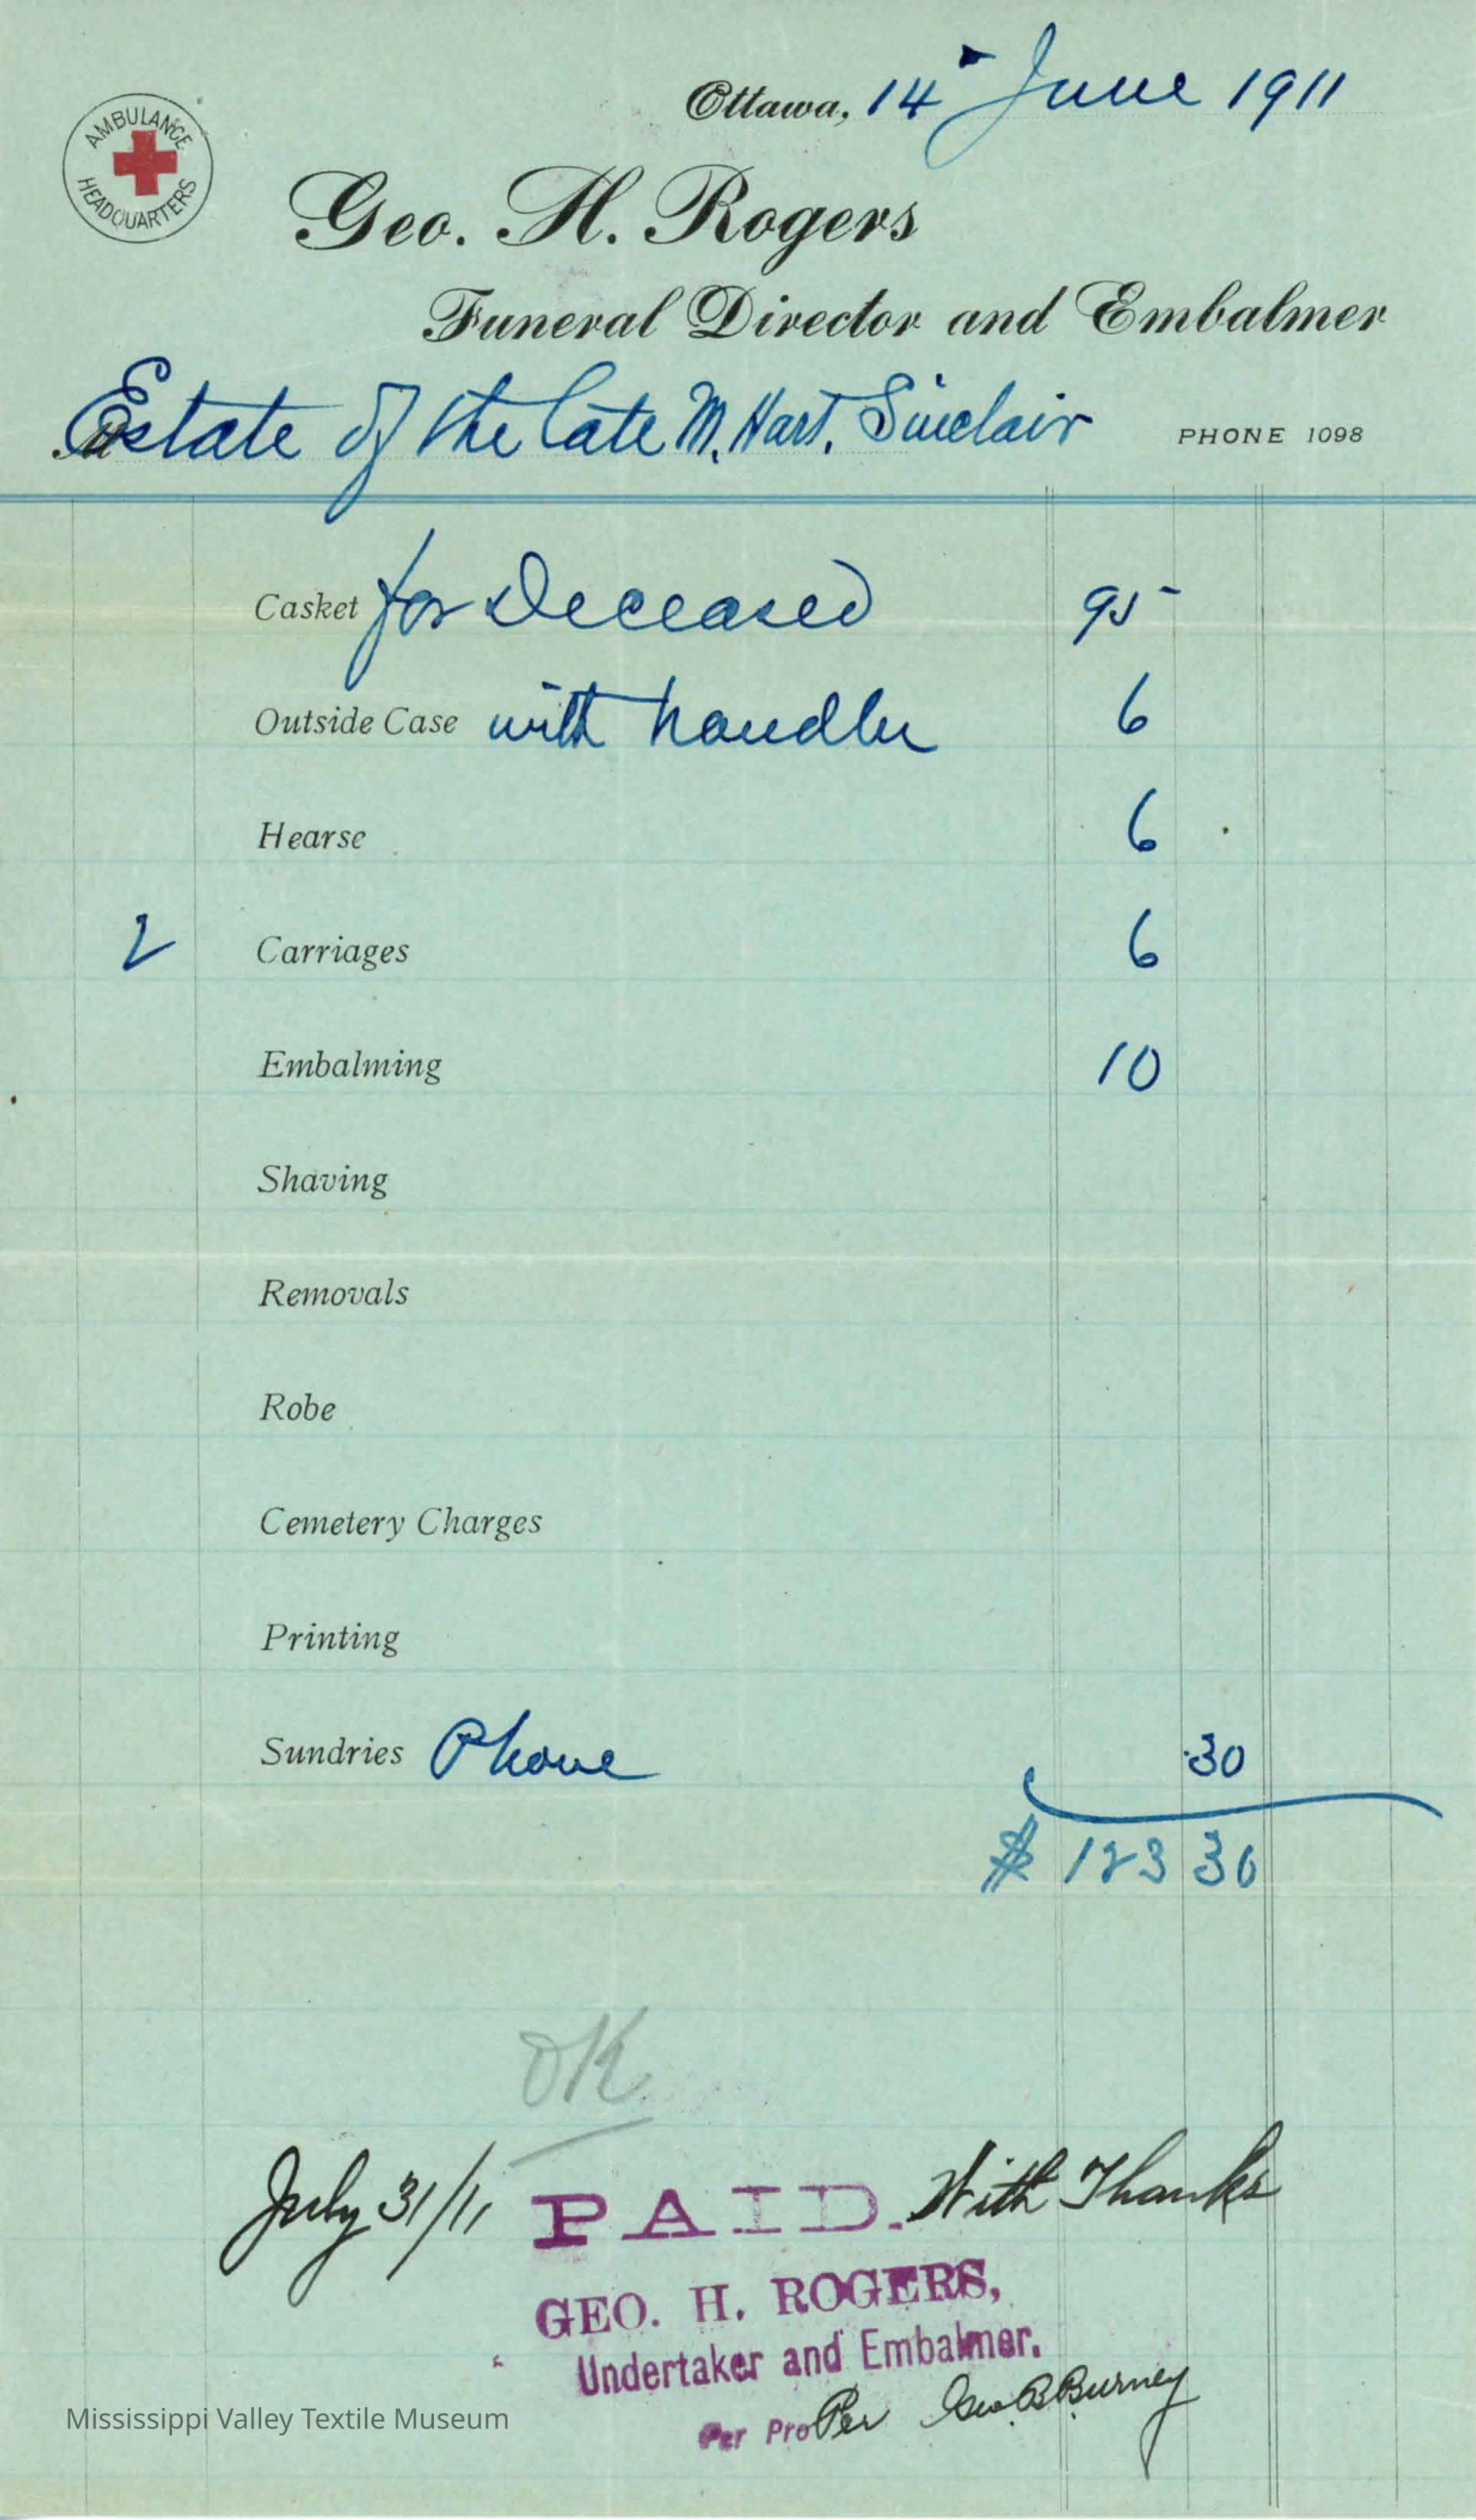 AMBULANCE HEADQUARTERS
Ottawa, 14 June 1911
Geo. H. Rogers
Funeral Director and Embalmer
Estate of the late M. Hart. Sinclair PHONE 1098
Casket for Deceased 95 -
Outside Case with handles 6
Hearse 6
2 Carriages 6
Embalming 10
Shaving
Removals
Robe
Cemetery Charges
Printing
Sundries Phone .30
$ 123 30
OK
July 31/11 PAID. With Thanks
GEO. H. ROGERS,
Undertaker and Embalmer.
Per Pro Per Geo B Burney
Mississippi Valley Textile Museum